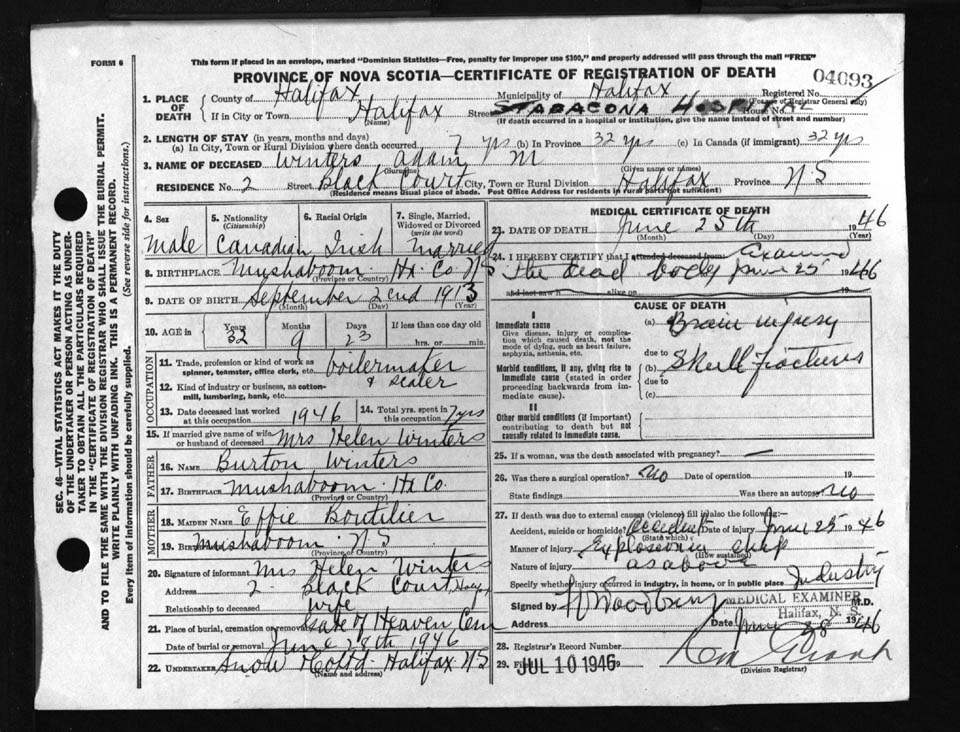 FORM 6
This form if placed in an envelope, marked "Dominion Statistics—Free, penalty for improper use $300," and properly addressed will pass through the mail "FREE"
PROVINCE OF NOVA SCOTIA—CERTIFICATE OF REGISTRATION OF DEATH
04093
1. PLACE OF DEATH
County of Halifax Municipality of Halifax Registered No.
(For use of Registrar General only)
If in City or Town Halifax (Name) Street STADACONA HOSPITAL House No.
(If death occurred in a hospital or institution, give the name instead of street and number)
2. LENGTH OF STAY (in years, months and days)
(a) In City, Town or Rural Division where death occurred 7 yrs (b) In Province 32 yrs (c) In Canada (if immigrant) 32 yrs
3. NAME OF DECEASED Winters Adam M
(Surname) (Given name or names)
RESIDENCE No. 2 Street Black Court City, Town or Rural Division Halifax Province N.S
(Residence means usual place of abode. Post Office Address for residents in rural parts not sufficient)
4. Sex Male
5. Nationality (Citizenship) Canadian
6. Racial Origin Irish
7. Single, Married, Widowed or Divorced (write the word) Married
8. BIRTHPLACE Mushaboom Hx. Co N.S
(Province or Country)
9. DATE OF BIRTH September 22nd 1913
(Month) (Day) (Year)
10. AGE in Years 32 Months 9 Days 23 If less than one day old hrs. or min.
OCCUPATION
11. Trade, profession or kind of work as spinner, teamster, office clerk, etc. boilermaker & sealer
12. Kind of industry or business, as cotton-mill, lumbering, bank, etc.
13. Date deceased last worked at this occupation 1946
14. Total yrs. spent in this occupation 7 yrs
15. If married give name of wife or husband of deceased Mrs Helen Winters
FATHER
16. NAME Burton Winters
17. BIRTHPLACE Mushaboom Hx Co.
(Province or Country)
MOTHER
18. MAIDEN NAME Effie Boutilier
19. BIRTHPLACE Mushaboom N.S.
(Province or Country)
20. Signature of informant Mrs Helen Winters
Address 2 Black Court
Relationship to deceased wife
21. Place of burial, cremation or removal Gate of Heaven Cem
Date of burial or removal June 1946
22. UNDERTAKER Snow & Co Ltd. Halifax N.S
(Name and address)
MEDICAL CERTIFICATE OF DEATH
23. DATE OF DEATH June 25th 1946
(Month) (Day) (Year)
24. I HEREBY CERTIFY that I attended deceased from: Examined
The dead body June 25 1946
and last saw h alive on 19
CAUSE OF DEATH
I
Immediate cause
Give disease, injury or complication which caused death, not the mode of dying, such as heart failure, asphyxia, asthenia, etc.
(a) Brain injury
due to
Morbid conditions, if any, giving rise to immediate cause (stated in order proceeding backwards from immediate cause).
(b) Skull Fractures
due to
(c)
II
Other morbid conditions (if important) contributing to death but not causally related to immediate cause.
25. If a woman, was the death associated with pregnancy? —
26. Was there a surgical operation? No Date of operation 19
State findings Was there an autopsy? No
27. If death was due to external causes (violence) fill in also the following:—
Accident, suicide or homicide? Accident Date of injury June 25 1946
(State which)
Manner of injury Explosion ship
(How sustained)
Nature of injury as above
Specify whether injury occurred in industry, in home, or in public place Industry
Signed by Woodbury M.D.
MEDICAL EXAMINER
Halifax, N. S.
Address Date June 28 1946
28. Registrar's Record Number
29. Filed JUL 10 1946
(Division Registrar)
SEC. 46—VITAL STATISTICS ACT MAKES IT THE DUTY OF THE UNDERTAKER OR PERSON ACTING AS UNDERTAKER TO OBTAIN ALL THE PARTICULARS REQUIRED IN THE "CERTIFICATE OF REGISTRATION OF DEATH" AND TO FILE THE SAME WITH THE DIVISION REGISTRAR WHO SHALL ISSUE THE BURIAL PERMIT.
WRITE PLAINLY WITH UNFADING INK. THIS IS A PERMANENT RECORD.
Every item of information should be carefully supplied. (See reverse side for instructions.)